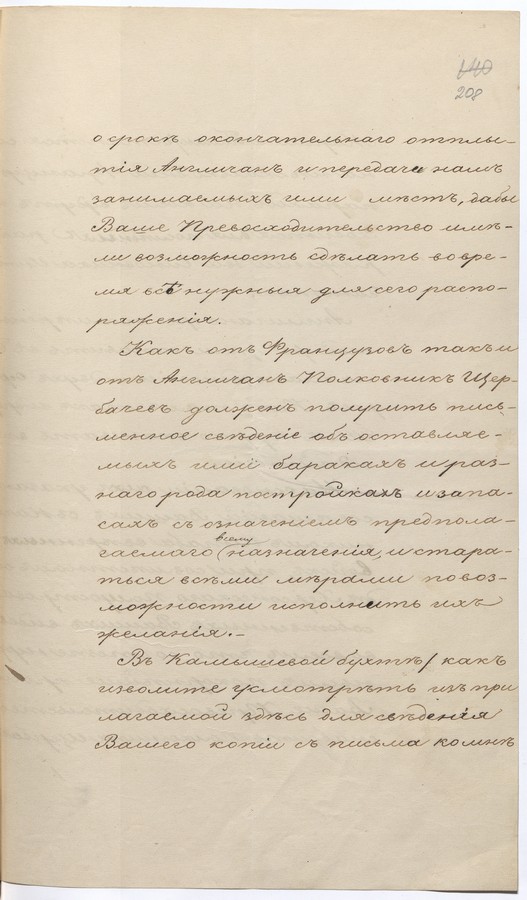 208
о срокѣ окончательнаго отплы-
тія Англичанъ и передачи намъ
занимаемыхъ ими мѣстъ, дабы
Ваше Превосходительство имѣ-
ли возможность сдѣлать во вре-
мя всѣ нужныя для сего распо-
ряженія.
Какъ отъ Французовъ такъ и
отъ Англичанъ Полковникъ Щер-
бачевъ долженъ получить пись-
менное свѣденіе объ оставляе-
мыхъ ими баракахъ и раз-
наго рода постройкахъ и запа-
сахъ съ означеніемъ предпола-
всему
гаемаго назначенія, и стара-
ться всѣми мѣрами по воз-
можности исполнить ихъ
желанія.
Въ Камышевой бухтѣ / какъ
изволите усмотрѣть изъ при
лагаемой здѣсь для свѣденія
Вашего копіи съ письма ко мнѣ